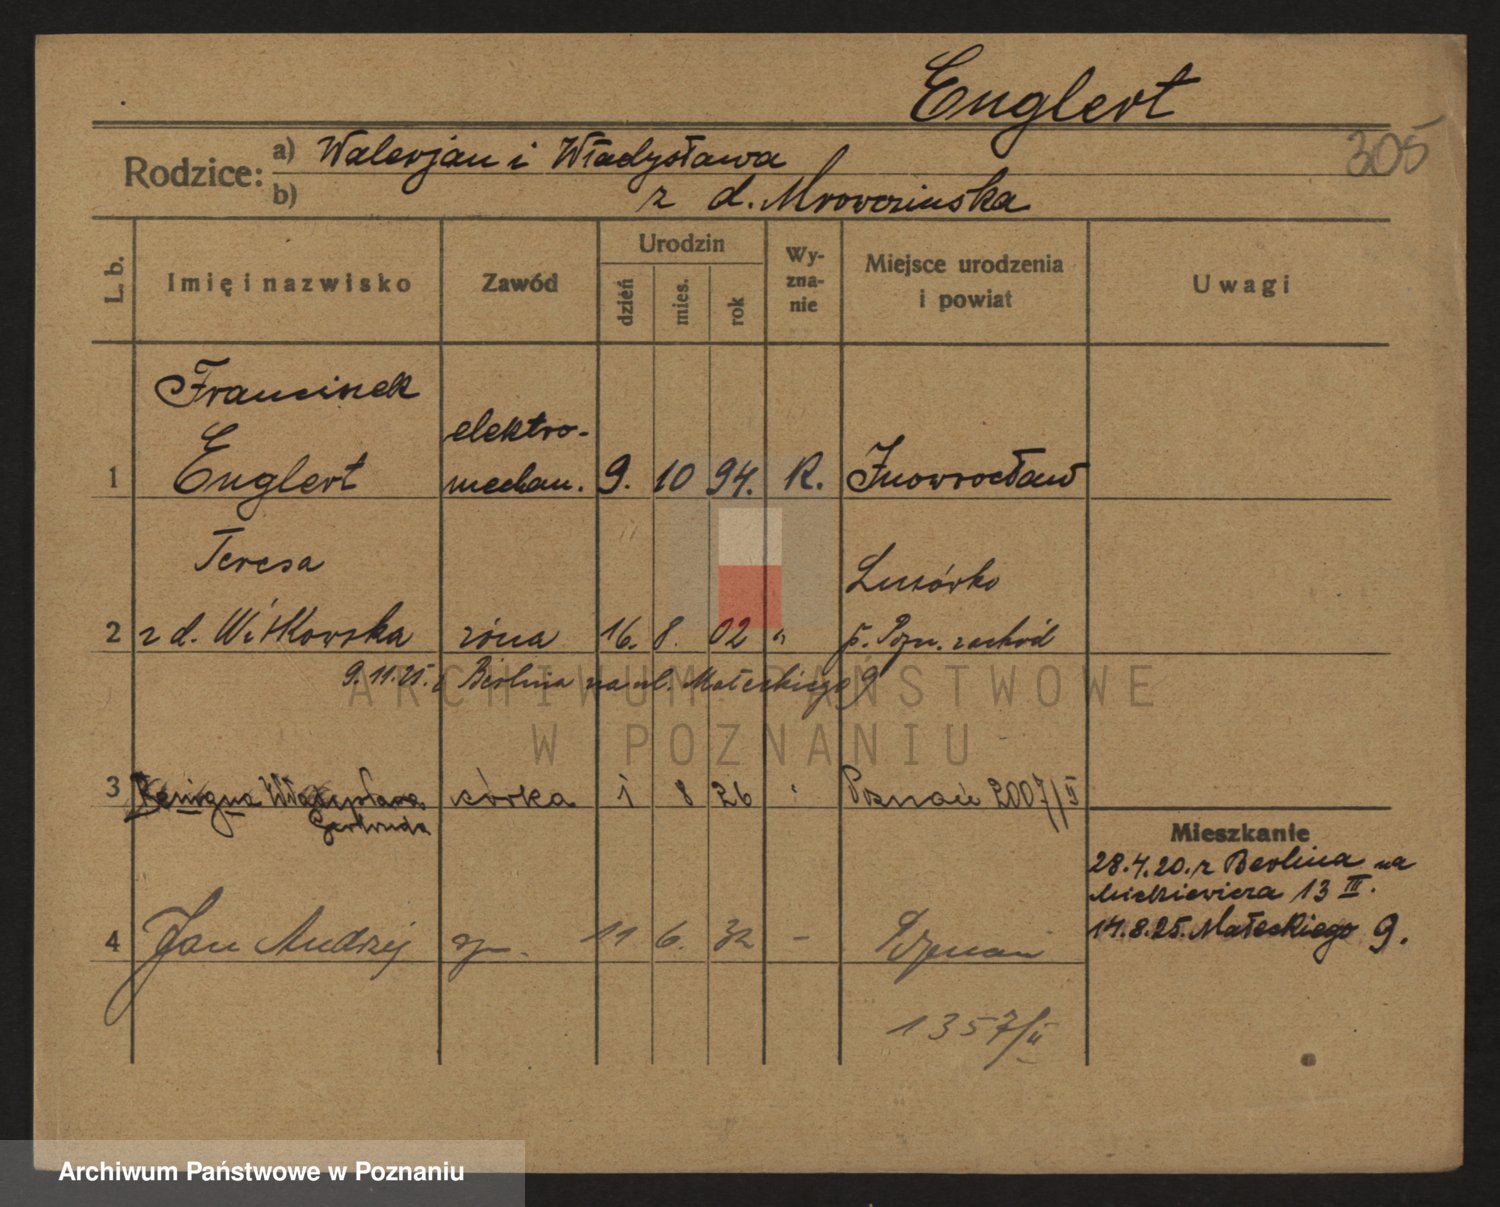 Englert
305
Rodzice:
a) Walerjan i Władysława
b) z d. Mrowczinska
L. b.
Imię i nazwisko
Zawód
Urodzin
dzień
mies.
rok
Wy-
zna-
nie
Miejsce urodzenia
i powiat
Uwagi
Franciszek
elektro-
1 Englert mechan. 9. 10 94. R. Inowrocław
Teresa
Lusówko
2 z d. Witkowska żona 16. 8. 02 " p. Pozn. zachód
9.11.25. z Berlina na ul. Małeckiego 9
ARCHIWUM PAŃSTWOWE
W POZNANIU
3 Benigna Władysława córka 1 8 26 " Poznań 2007/II
Gertruda
Mieszkanie
28.4.20. z Berlina na
Mickiewicza 13 III.
14.8.25. Małeckiego 9.
4 Jan Andrzej 11 6. 32 – Poznań
1357/II
Archiwum Państwowe w Poznaniu